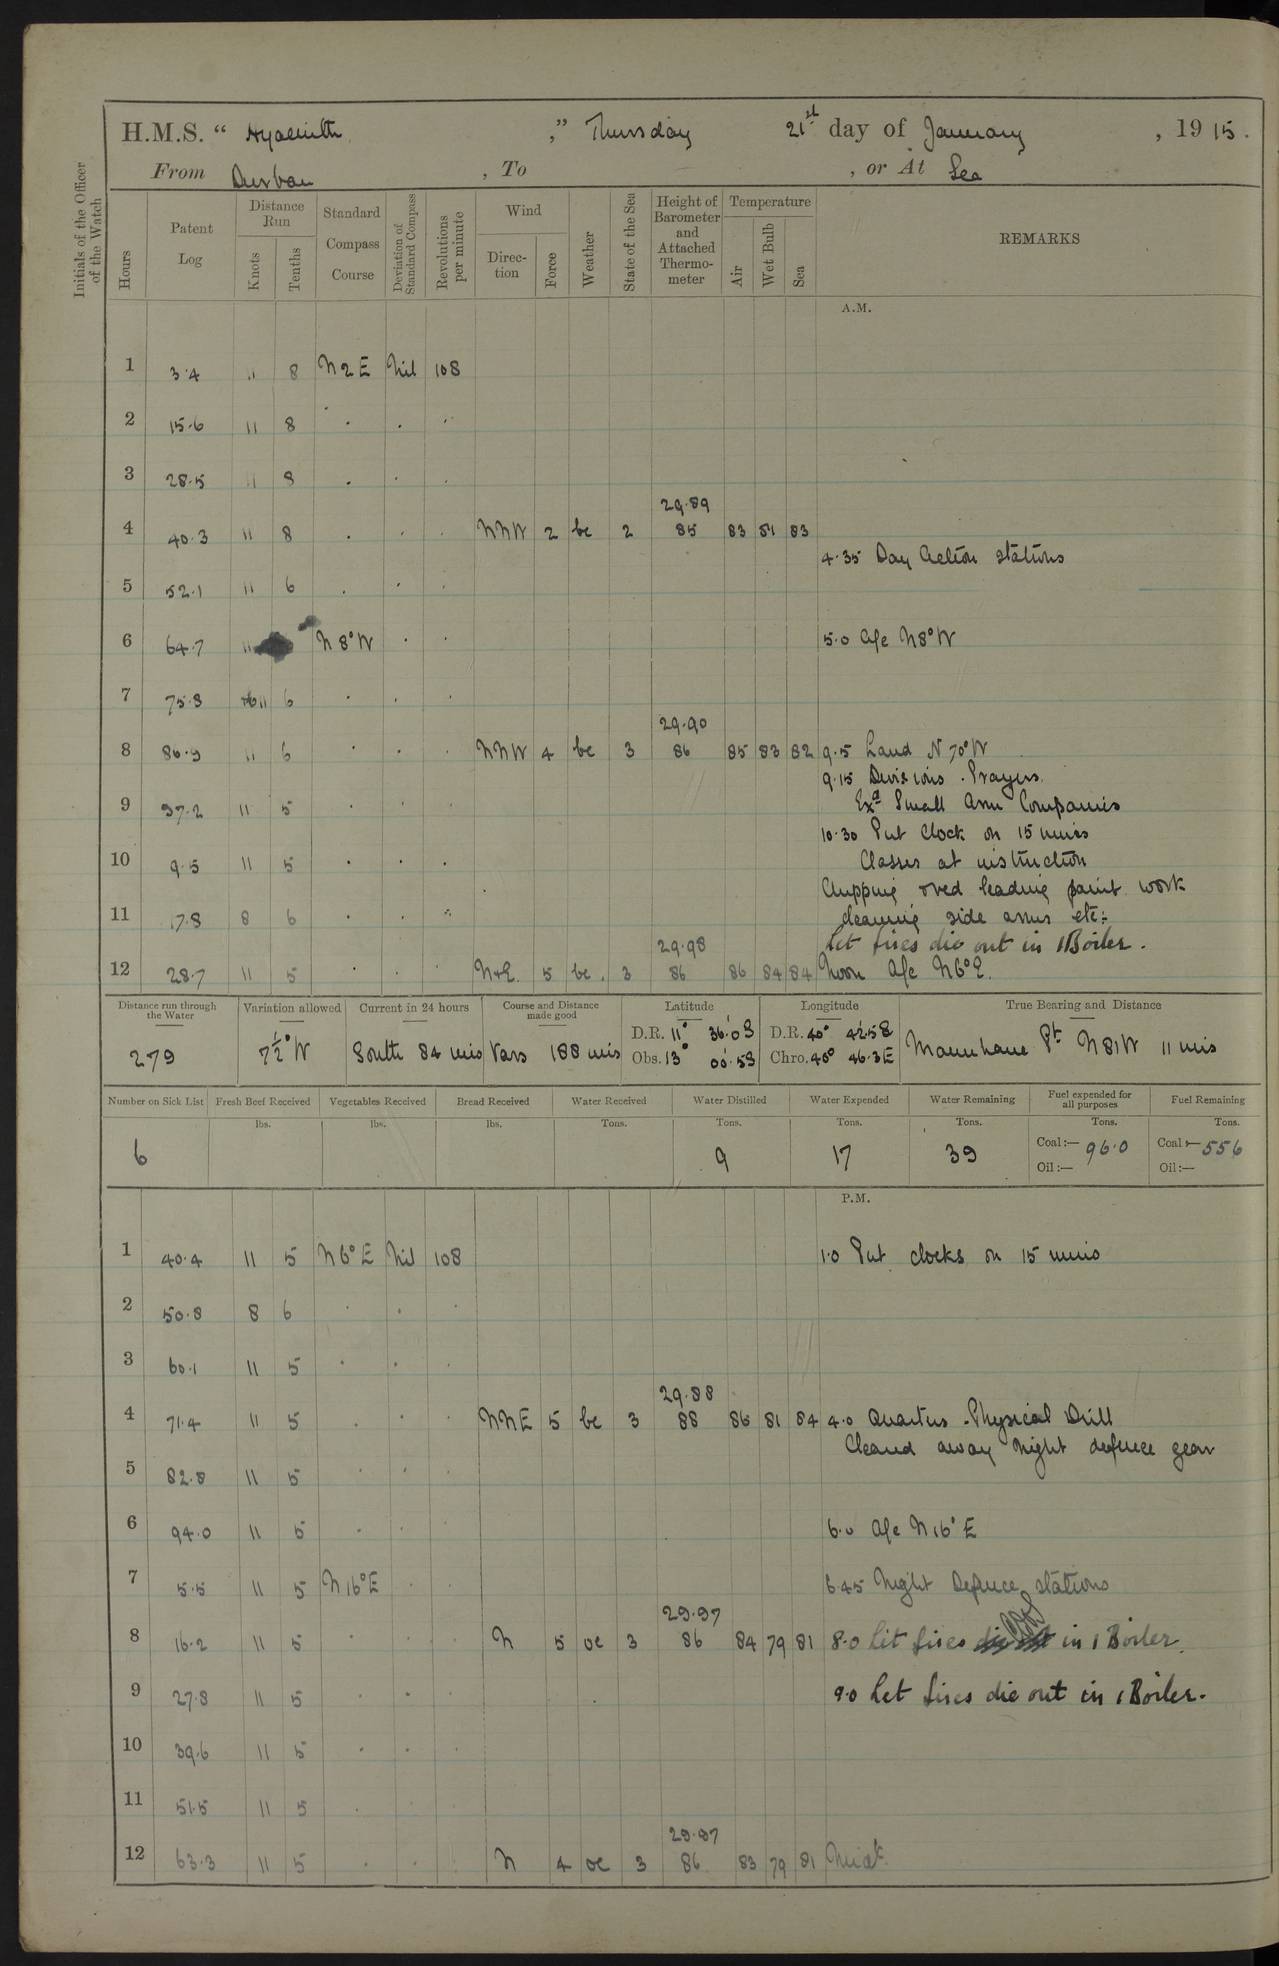 H.M.S. “ Hyacinth ,” Thursday 21st day of January , 19 15.
From Durban , To — , or At Sea
Initials of the Officer of the Watch
Hours Patent Log Distance Run Knots Tenths Standard Compass Course Deviation of Standard Compass Revolutions per minute Wind Direc-tion Force Weather State of the Sea Height of Barometer and Attached Thermo-meter Temperature Air Wet Bulb Sea REMARKS
A.M.
1 3.4 11 8 N 2 E Nil 108
2 15.6 11 8 . . .
3 28.5 11 8 . . .
29.89
4 40.3 11 8 . . . NNW 2 bc 2 85 83 81 83
4.35 Day Action Stations
5 52.1 11 6 . . .
6 64.7 11 N 8° W . . 5.0 A/c N8°W
7 75.8 11 6 . . .
29.90
8 86.9 11 6 . . . NNW 4 bc 3 86 85 83 82 9.5 Land N 70° W
9.15 Divisions . Prayers.
9 97.2 11 5 . . . Exd Small Arm Companies
10.30 Put Clock on 15 mins
10 9.5 11 5 . . . Classes at instruction
Chipping & red leading paint work
11 17.8 8 6 . . . cleaning side arms etc:-
29.98 Let fires die out in 1 Boiler.
12 28.7 11 5 . . . N+E. 5 bc. 3 86 86 84 84 Noon A/c N6°E.
Distance run through the Water Variation allowed Current in 24 hours Course and Distance made good Latitude Longitude True Bearing and Distance
279 7½° W South 84 mis Vars 188 mis D.R. 11° 36'.0 S D.R. 40° 42'.5 E
Obs. 13° 00'.5 S Chro. 40° 46.3 E Pt N 81 W 11 mis
Number on Sick List Fresh Beef Received Vegetables Received Bread Received Water Received Water Distilled Water Expended Water Remaining Fuel expended for all purposes Fuel Remaining
lbs. lbs. lbs. Tons. Tons. Tons. Tons. Tons. Tons.
6 9 17 39 Coal :— 96.0 Coal :— 556
Oil :— Oil :—
P.M.
1 40.4 11 5 N 6° E Nil 108 1.0 Put clocks on 15 mins
2 50.8 8 6 . . .
3 60.1 11 5 . . .
29.88
4 71.4 11 5 . . . NNE 5 bc 3 88 86 81 84 4.0 Quarters . Physical Drill
Cleared away Night defence gear
5 82.8 11 5 . . .
6 94.0 11 5 . . . 6.0 A/c N 16° E
7 5.5 11 5 N 16° E . . 6.45 Night Defence Stations
29.97
8 16.2 11 5 . . . N 5 oc 3 86 84 79 81 8.0 Lit fires in 1 Boiler.
9 27.8 11 5 . . . 9.0 Let fires die out in 1 Boiler.
10 39.6 11 5 . . .
11 51.5 11 5 . . .
29.97
12 63.3 11 5 . . . N 4 oc 3 86 83 79 81 Midt.